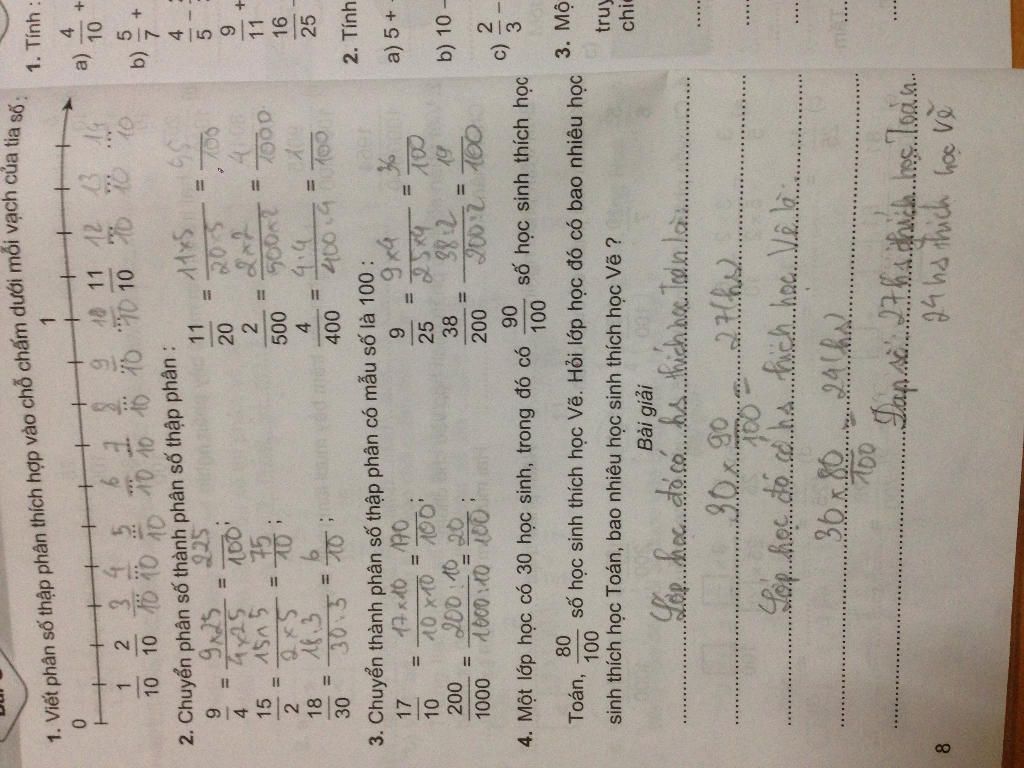 1. Viết phân số thập phân thích hợp vào chỗ chấm dưới mỗi vạch của tia số :
0 1
1/10 2/10 3/10 4/10 5/10 6/10 7/10 8/10 9/10 10/10 11/10 12/10 13/10 14/10
2. Chuyển phân số thành phân số thập phân :
9/4 = 9x25/4x25 = 225/100 ; 11/20 = 11x5/20x5 = /100
15/2 = 15x5/2x5 = 75/10 ; 2/500 = 2x2/500x2 = 4/1000
18/30 = 18:3/30:3 = 6/10 ; 4/400 = 4:4/400:4 = 1/100
3. Chuyển thành phân số thập phân có mẫu số là 100 :
17/10 = 17x10/10x10 = 170/100 ; 9/25 = 9x4/25x4 = 36/100
200/1000 = 200:10/1000:10 = 20/100 ; 38/200 = 38:2/200:2 = 19/100
4. Một lớp học có 30 học sinh, trong đó có 90/100 số học sinh thích học
Toán, 80/100 số học sinh thích học Vẽ. Hỏi lớp học đó có bao nhiêu học
sinh thích học Toán, bao nhiêu học sinh thích học Vẽ ?
Bài giải
Lớp học đó có hs thích học Toán là
30 x 90/100 = 27(hs)
Lớp học đó có hs thích học Vẽ là
30 x 80/100 = 24(hs)
Đáp số: 27hs thích học Toán
24 hs thích học Vẽ
8
1. Tính :
a) 4/10 +
b) 5/7 +
4/5 -
9/11 +
16/25
2. Tính
a) 5 +
b) 10 -
c) 2/3 -
3. Mộ
truy
chiế